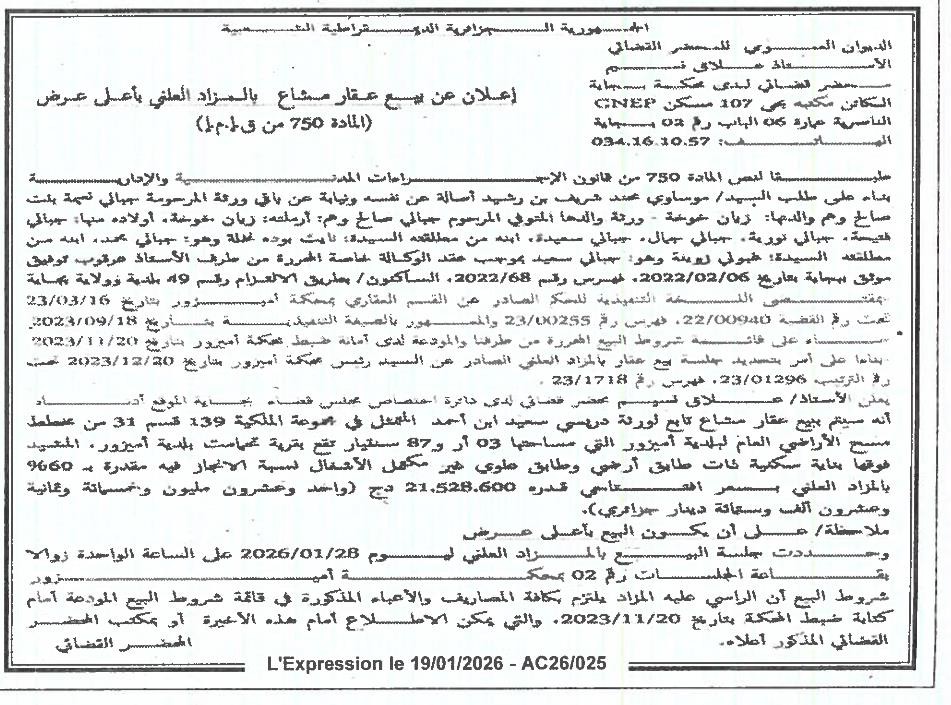 الجمهورية الجزائرية الديمقراطية الشعبية
الديوان العمومي للمحضر القضائي
الأستاذ علاق نسيم
محضر قضائي لدى محكمة بجاية
الكائن مكتبه بحي 107 مسكن CNEP
الناصرية عمارة 06 الباب رقم 02 بجاية
الهاتف: 034.16.10.57
إعلان عن بيع عقار مشاع بالمزاد العلني بأعلى عرض
(المادة 750 من ق.إ.م.إ)
طبقا لنص المادة 750 من قانون الإجراءات المدنية والإدارية
بناء على طلب السيد/ موساوي محند شريف بن رشيد أصالة عن نفسه ونيابة عن باقي ورثة المرحومة جبالي نسيمة بنت
صالح وهم والدها: زيان خوخة - ورثة والدها المتوفي المرحوم جبالي صالح وهم: أرملته: زيان خوخة، أولاده منها: جبالي
فتيحة، جبالي نورية، جبالي جمال، جبالي سعيدة، ابنه من مطلقته السيدة: نايت بوده نحلة وهو: جبالي محمد، ابنه من
مطلقته السيدة: زوينة وهو: جبالي سعيد بموجب عقد الوكالة خاصة المحررة من طرف الأستاذ عرقوب توفيق
موثق ببجاية بتاريخ 2022/02/06، فهرس رقم 2022/68، الساكنون/ بطريق الالتزام رقم 49 بلدية وولاية بجاية
بمقتضى النسخة التنفيذية للحكم الصادر عن القسم العقاري بمحكمة أميزور بتاريخ 23/03/16
تحت رقم القضية 22/00940، فهرس رقم 23/00255 والممهور بالصيغة التنفيذية بتاريخ 2023/09/18
بناء على قائمة شروط البيع المحررة من طرفنا والمودعة لدى أمانة ضبط محكمة أميزور بتاريخ 2023/11/20
بناءا على أمر بتحديد جلسة بيع عقار بالمزاد العلني الصادر عن السيد رئيس محكمة أميزور بتاريخ 2023/12/20 تحت
رقم الترتيب 23/01296، فهرس رقم 23/1718 .
يعلن الأستاذ/ علاق نسيم محضر قضائي لدى دائرة اختصاص مجلس قضاء بجاية الموقع أدناه
أنه سيتم بيع عقار مشاع تابع لورثة دريسي سعيد ابن أحمد المتمثل في مجموعة الملكية 139 قسم 31 من مخطط
مسح الأراضي العام لبلدية أميزور التي مساحتها 03 آر و87 سنتيار تقع بقرية بلدية أميزور، المشيد
فوقها بناية سكنية ذات طابق أرضي وطابق علوي غير مكتمل الأشغال نسبة الانجاز فيه مقدرة بـ 60%
بالمزاد العلني بسعر افتتاحي قدره 21.528.600 دج (واحد وعشرون مليون وخمسمائة وثمانية
وعشرون ألف وستمائة دينار جزائري).
ملاحظة/ على أن يكون البيع بأعلى عرض
وحددت جلسة البيع بالمزاد العلني ليوم 2026/01/28 على الساعة الواحدة زوالا
بقاعة الجلسات رقم 02 بمحكمة أميزور
شروط البيع أن الراسي عليه المزاد يلتزم بكافة المصاريف والأعباء المذكورة في قائمة شروط البيع المودعة أمام
كتابة ضبط المحكة بتاريخ 2023/11/20، والتي يمكن الاطلاع أمام هذه الأخيرة أو بمكتب المحضر
القضائي المذكور أعلاه.
المحضر القضائي
L'Expression le 19/01/2026 - AC26/025